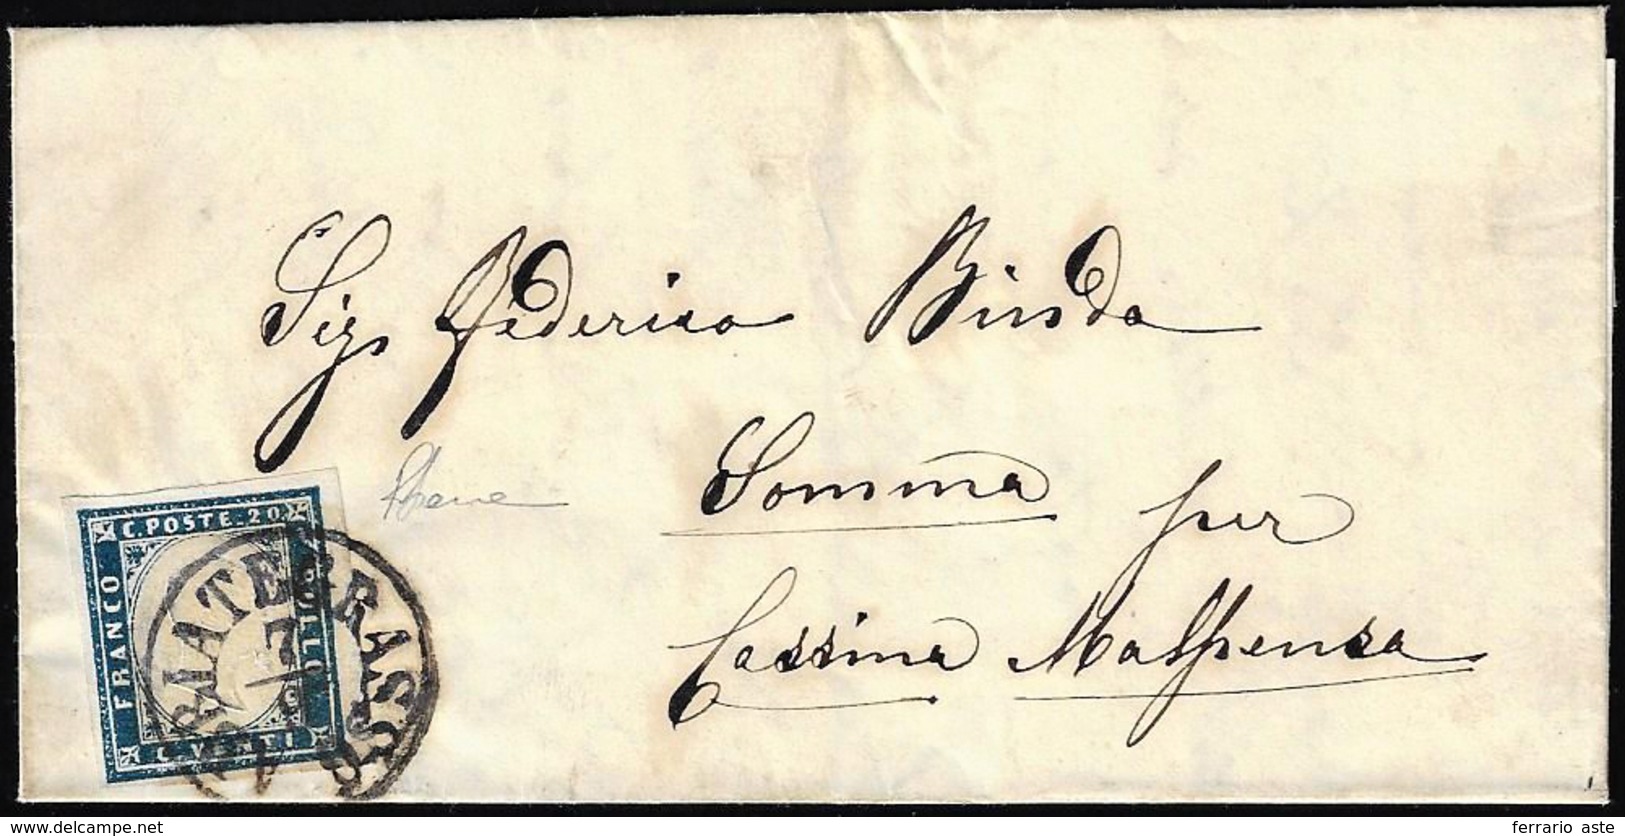 Sig. Federico Binda
Somma per
Cassina Malpensa
C. POSTE. 20.
FRANCO
BOLLO
C. VENTI
ABBIATEGRASSO
7
9
delcampe.net
ferrario aste